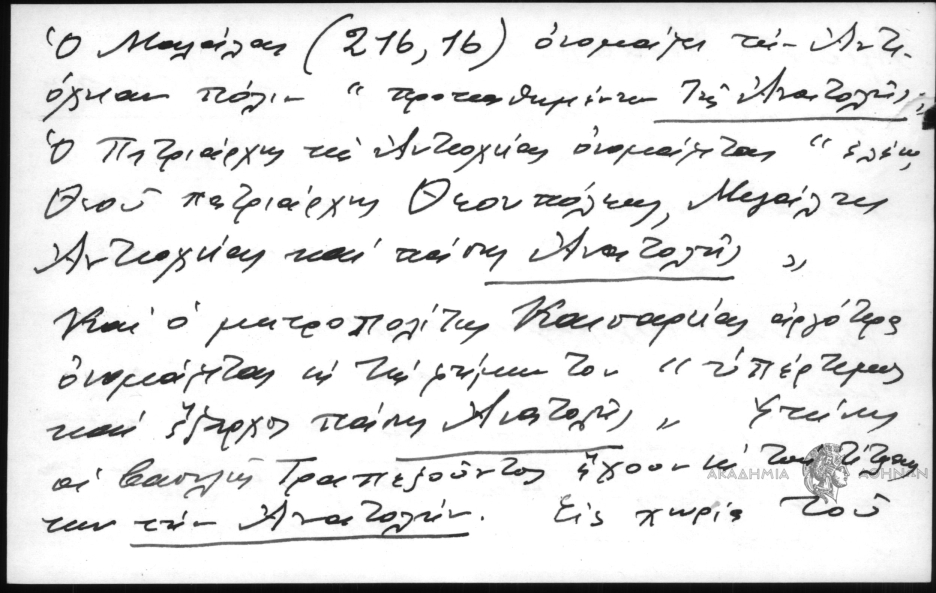 Ὁ Μαλάλας (216,16) ὀνομάζει τὴν Ἀντι-
όχειαν πόλιν “προκαθημένην τῆς Ἀνατολῆς„
Ὁ Πατριάρχης τῆς Ἀντιοχείας ὀνομάζεται “ἐλέῳ
Θεοῦ πατριάρχης Θεουπόλεως, Μεγάλης
Ἀντιοχείας καὶ πάσης Ἀνατολῆς„
Καὶ ὁ μητροπολίτης Καισαρείας ἀργότερα
ὀνομάζεται “ὑπέρτιμος
καὶ ἔξαρχος πάσης Ἀνατολῆς„ Ἐπίσης
οἱ βασιλεῖς Τραπεζοῦντος ἔχουν
των τὴν Ἀνατολήν. Εἰς χωρία τοῦ
ΑΚΑΔΗΜΙΑ ΑΘΗΝΩΝ